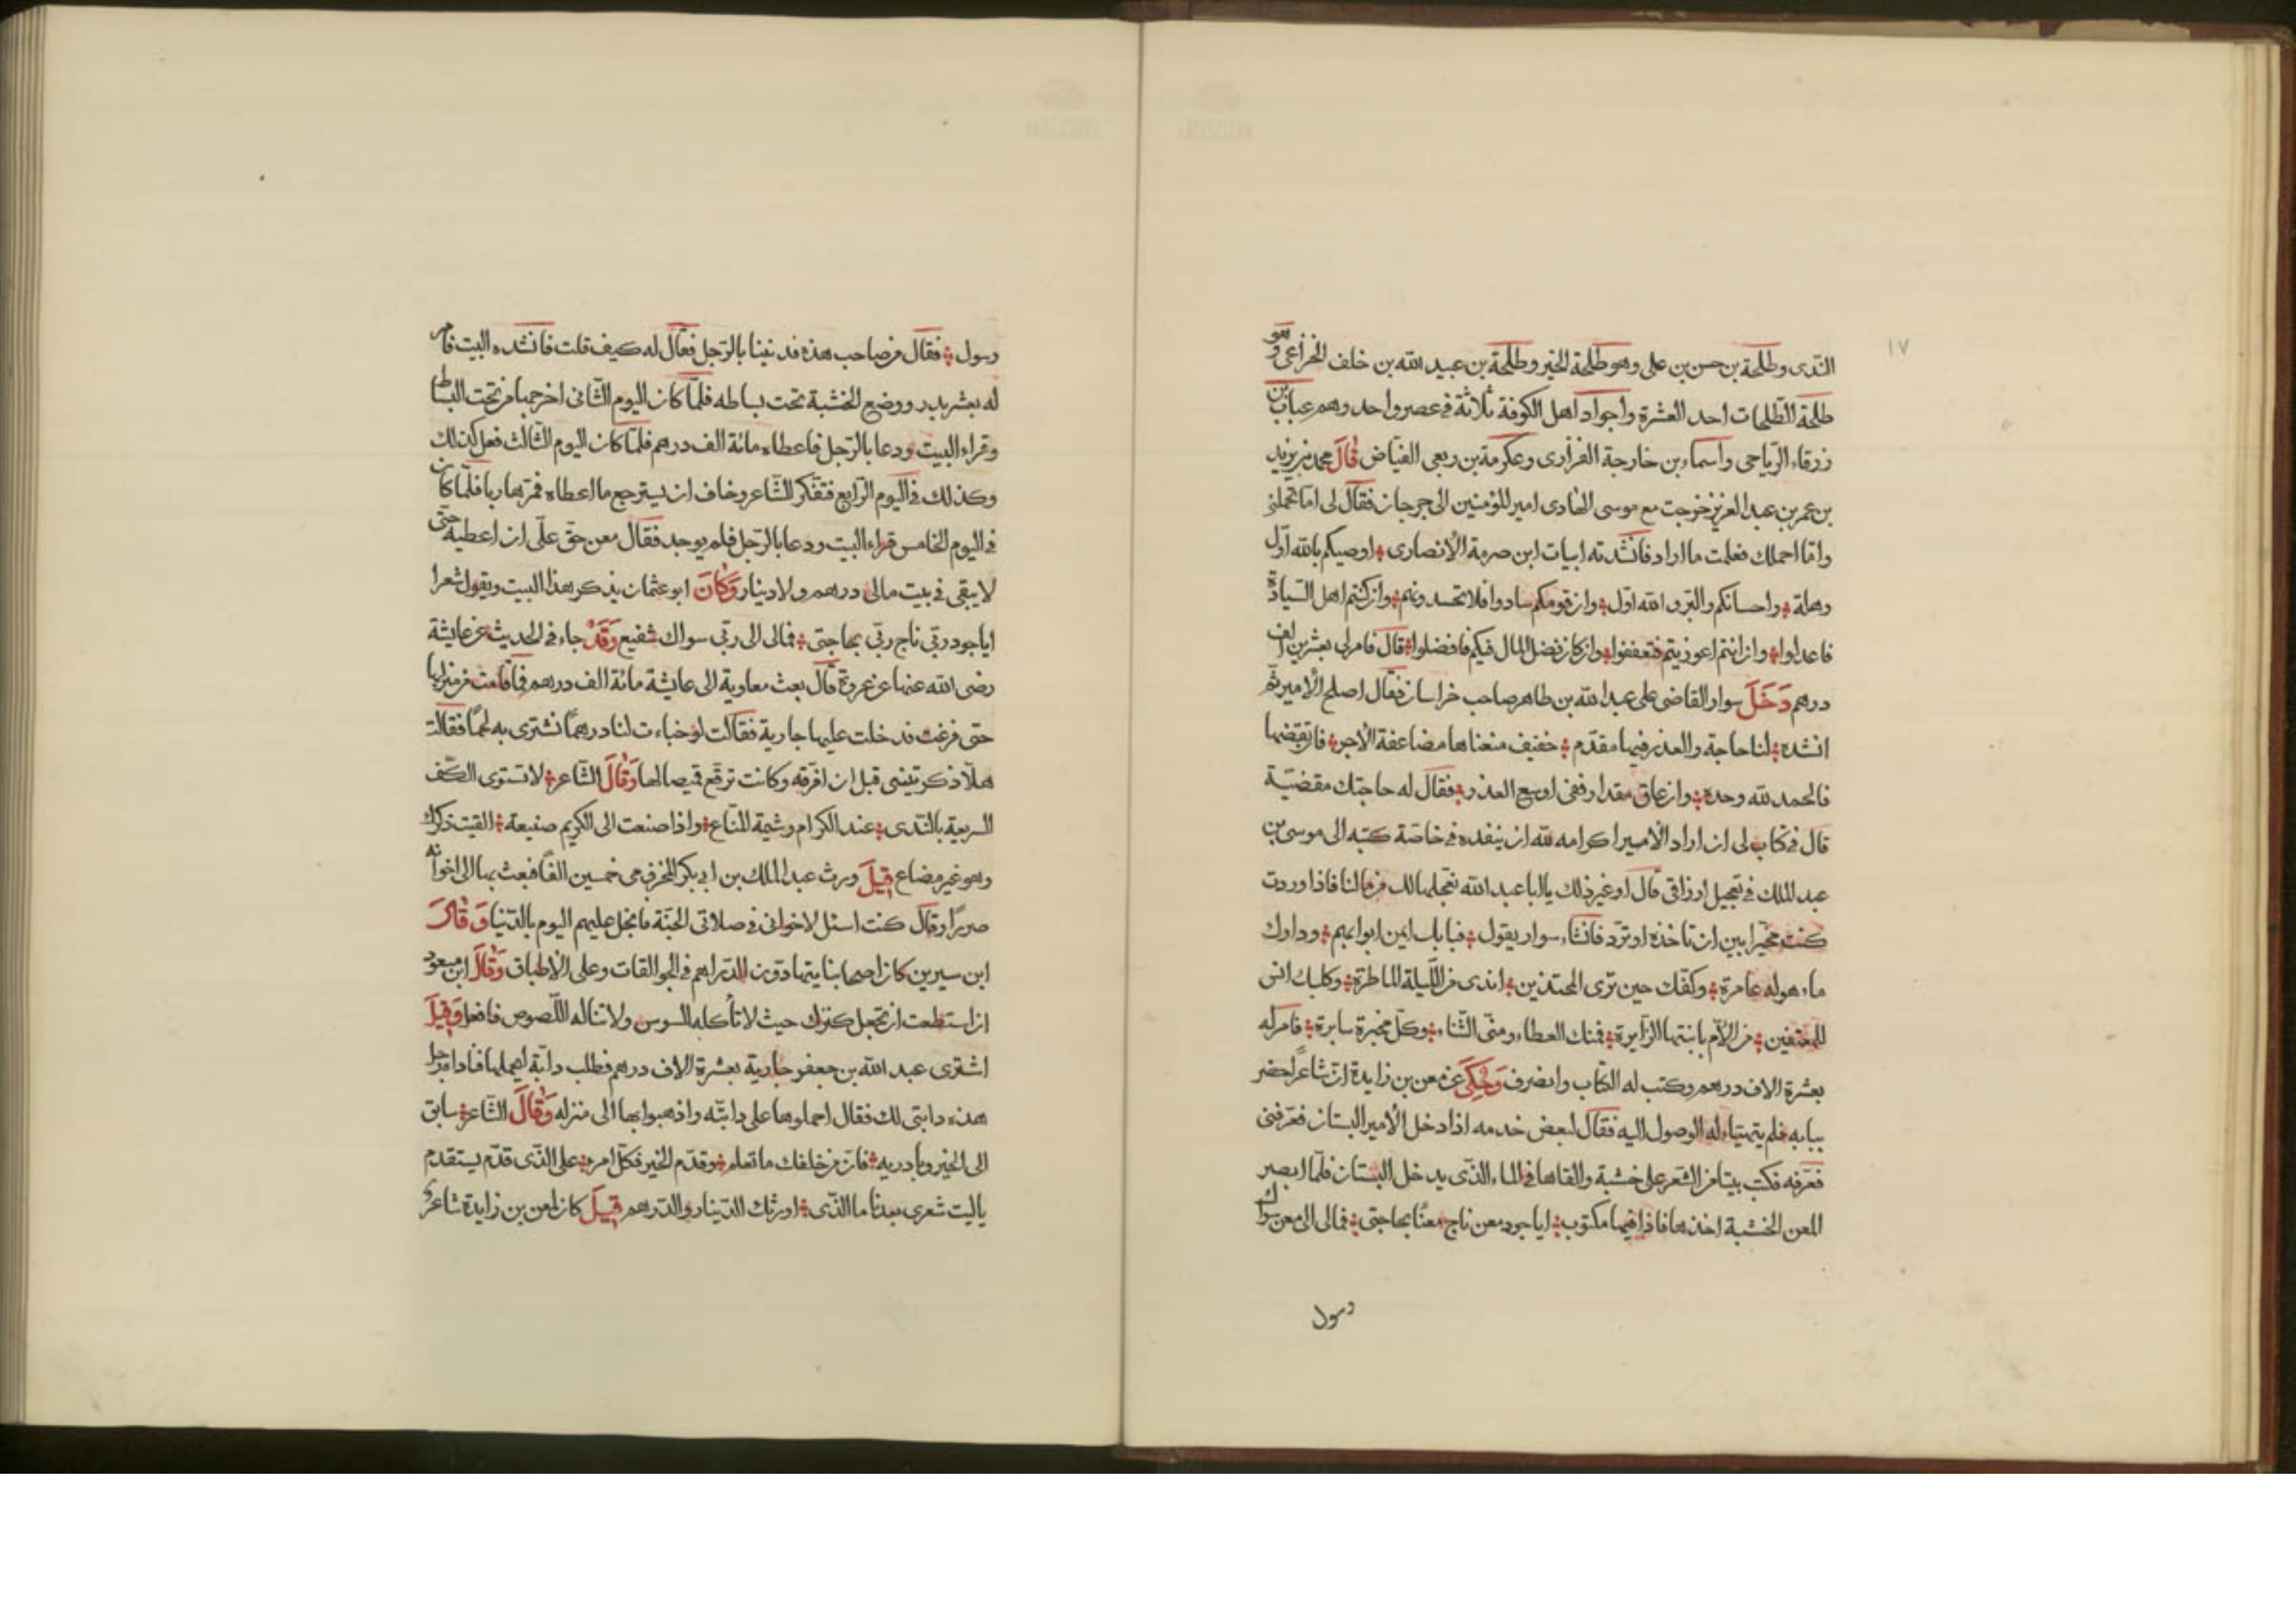 ١٧
النّدى وطلحة بن حسن بن على وهو طلحة الخير وطلحة بن عبيد الله بن خلف الخزاعى وهو
طلحة الطّلحات احد العشرة واجواد اهل الكوفة ثلاثة فى عصر واحد وهم عتاب بن
زرقاء الرّياحى واسماء بن خارجة الفزارى وعكرمة بن ربعى الفيّاض قَالَ محمد بن يزيد
بن عمر بن عبد العزيز خرجت مع موسى الهادى امير المؤمنين الى جرجان فقال لى امّا تحملنى
وامّا احملك فعلمت ما اراد فانشدته ابيات ابن صرمة الأنصارى اوصيكم بالله اوّل
وهلة واحسابكم والبّر والله اوّل وان قومكم سادوا فلا تحسدونهم وان كنتم اهل السّيادة
فاعدلوا وان انتم اعوزيتم فتعففوا وان كان فضل المال فيكم فافضلوا قال فامر لى بعشرين الف
درهم دَخَلَ سوار القاضى على عبد الله بن طاهر صاحب خراسان فقال اصلح الأمير ثم
انشده لنا حاجة والعذر فيها مقدّم خفيف معناها مضاعفة الأجر فان تقضها
فالحمد لله وحده وان عاق مقدار ففى اوسع العذر فقال له حاجتك مقضيّة
قال فى كتاب لى ان اراد الأمير اكرامه لله ان ينفده فى خاصّة كتبه الى موسى بن
عبد الملك فى تعجيل ارزاقى قال او غير ذلك يا ابا عبد الله نعجلها لك من مالنا فاذا وردت
كنت مخيّرا بين ان تاخذه او تردّ فانشاء سوار يقول فبابك ايمن ابوابهم ودارك
ماءهوله عامرة وكفّك حين ترى المجتذين اندى من اللّيلة الماطرة وكلبك انس
للمعتفين من الأمّ بابنتها الزّايرة فمنك العطاء ومنّى الثّناء وكلّ مخبرة سايرة فامر له
بعشرة الاف درهم وكتب له الكتاب وانصرف وَحُكِىَ عن معن بن زايدة انّ شاعرًا حضر
ببابه فلم يتهيّاء له الوصول اليه فقال لبعض خدمه اذا دخل الأمير البستان فعرّفنى
فعرّفه فكتب بيتا من الشّعر على خشبة والقاها فى الماء الّذى يدخل البستان فلمّا ابصر
المعن الخشبة اخذها فاذا فيها مكتوب ايا جود معن ناج معنًا بحاجتى فمالى الى معن سواك
رسول
رسول فقال من صاحب هذه قد نبينا بالرّجل فقال له كيف قلت فانشده البيت فامر
له بعشر بدر ووضع الخشبة تحت بساطه فلمّا كان اليوم الثّانى اخرجها من تحت البساط
وقراء البيت ودعا بالرّجل فاعطاه مائة الف درهم فلمّا كان اليوم الثّالث فعل كذلك
وكذلك فى اليوم الرّابع فتفكّر الشّاعر وخاف ان يسترجع ما اعطاه فمرّ هاربا فلمّا كان
فى اليوم الخامس قراء البيت ودعا بالرّجل فلم يوجد فقال معن حقّ علّى ان اعطيه حتّى
لا يبقى فى بيت مالى درهم ولا دينار وَكَانَ ابو عثمان يذكر هذا البيت ويقول شعرا
ايا جود ربّى ناج ربّى بحاجتى فمالى الى ربّى سواك شفيع وَقَدْ جاء فى الحديث عن عايشة
رضى الله عنها عن عروة قال بعث معاوية الى عايشة مائة الف درهم فما قامت من منزلها
حتى فرغت فدخلت عليها جارية فقالت لو خباءت لنا درهمًا نشترى به لحمًا فقالت
هلّا ذكرتينى قبل ان افرّقه وكانت ترقّع قميصا لها وَقَالَ الشّاعر لا تستوى الكّف
السريعة بالنّدى عند الكرام وشيمة المنّاع واذا صنعت الى الكريم صنيعة القيت ذكرك
وهو غير مضاع قِيلَ ورث عبد الملك بن ابى بكر المخزومى خمسين الفًا فبعث بها الى اخوانه
صررًا وقال كنت اسئل لاخوانى فى صلاتى الجنّة فابخل عليهم اليوم بالدّنيا وَقَالَ
ابن سيرين كان اصحابنا يتهادون الدّراهم فى الجوالقات وعلى الأطباق وَقَالَ ابن مسعود
ان استطعت ان تجعل كنزك حيث لا تأكله السوس ولا تناله اللّصوص فافعل وَقِيلَ
اشترى عبد الله بن جعفر جارية بعشرة الاف درهم فطلب دابّة ليحملها فنادا رجل
هذه دابتى لك فقال احملوها على دابتّه واذهبوا بها الى منزله وَقَالَ الشّاعر سابق
الى الخير وبادر به فان من خلفك ما تعلم وقدّم الخير فكلّ امرء على الّذى قدّم يستقدم
ياليت شعرى بعدنا ما الّذى اورثك الدّينار والدّرهم قِيلَ كان لمعن بن زايدة شاعر